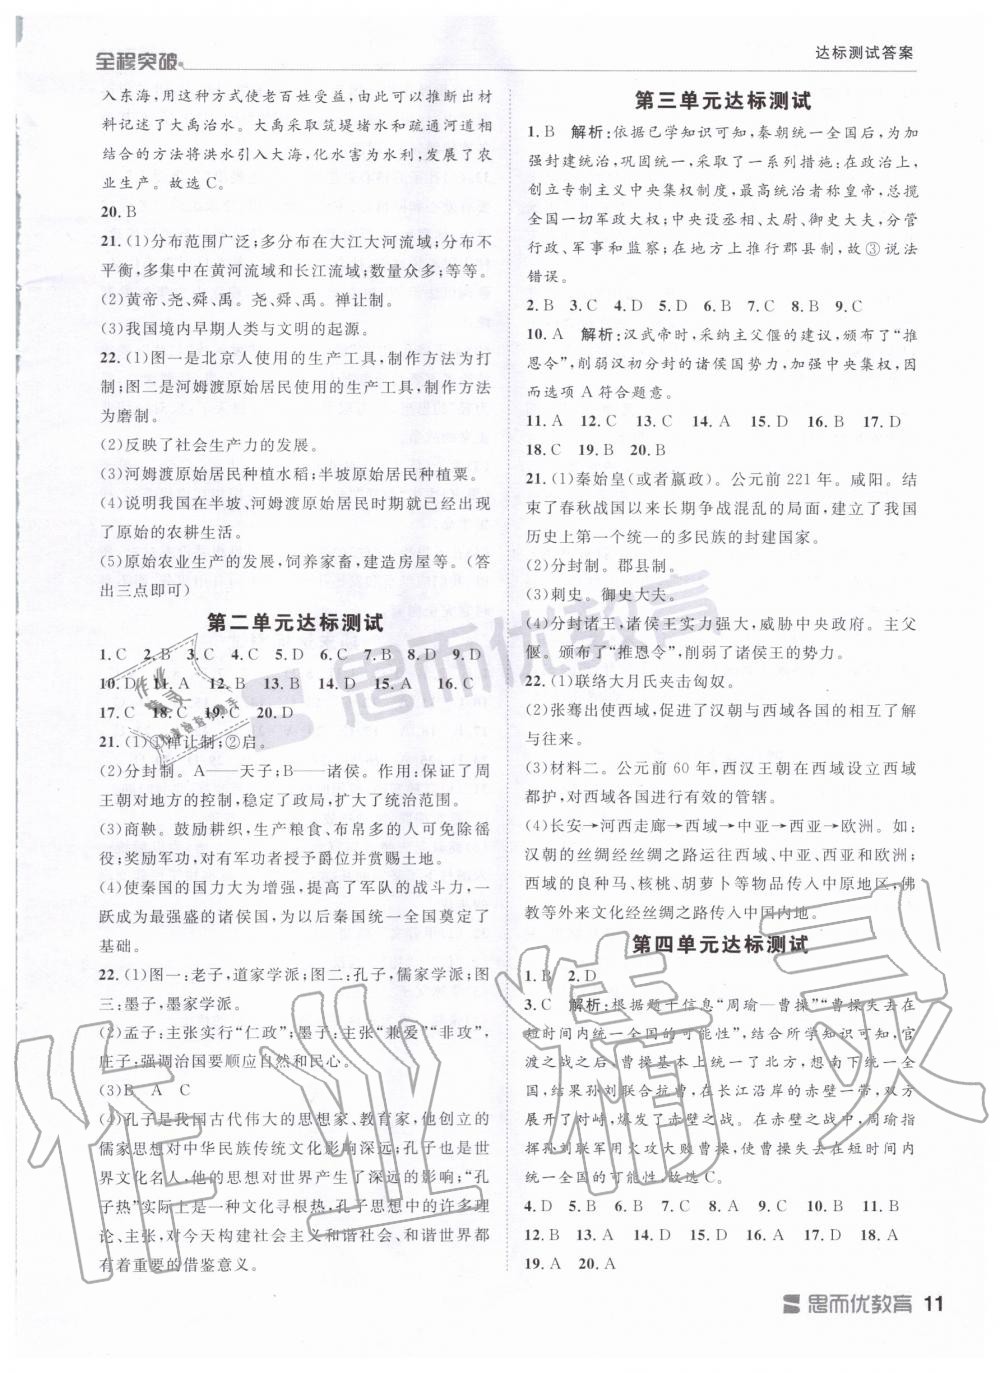 全程突破
达标测试答案
入东海,用这种方式使老百姓受益,由此可以推断出材
料记述了大禹治水。大禹采取筑堤堵水和疏通河道相
结合的方法将洪水引入大海,化水害为水利,发展了农
业生产。故选C。
20. B
21. (1)分布范围广泛;多分布在大江大河流域;分布不
平衡,多集中在黄河流域和长江流域;数量众多;等等。
(2)黄帝、尧、舜、禹。尧、舜、禹。禅让制。
(3)我国境内早期人类与文明的起源。
22. (1)图一是北京人使用的生产工具,制作方法为打
制;图二是河姆渡原始居民使用的生产工具,制作方法
为磨制。
(2)反映了社会生产力的发展。
(3)河姆渡原始居民种植水稻;半坡原始居民种植粟。
(4)说明我国在半坡、河姆渡原始居民时期就已经出现
了原始的农耕生活。
(5)原始农业生产的发展,饲养家畜,建造房屋等。(答
出三点即可)
第二单元达标测试
1. C 2. B 3. C 4. C 5. D 6. C 7. D 8. D 9. D
10. D 11. A 12. B 13. B 14. D 15. A 16. C
17. C 18. C 19. C 20. D
21. (1)①禅让制;②启。
(2)分封制。A——天子;B——诸侯。作用:保证了周
王朝对地方的控制,稳定了政局,扩大了统治范围。
(3)商鞅。鼓励耕织,生产粮食、布帛多的人可免除徭
役;奖励军功,对有军功者授予爵位并赏赐土地。
(4)使秦国的国力大为增强,提高了军队的战斗力,一
跃成为最强盛的诸侯国,为以后秦国统一全国奠定了
基础。
22. (1)图一:老子,道家学派;图二:孔子,儒家学派;图
三:墨子,墨家学派。
(2)孟子:主张实行“仁政”;墨子:主张“兼爱”“非攻”,
庄子:强调治国要顺应自然和民心。
(3)B A C
(4)孔子是我国古代伟大的思想家、教育家,他创立的
儒家思想对中华民族传统文化影响深远;孔子是世界
文化名人,他的思想对世界产生了深远的影响;“孔
子热”实际上是一种文化寻根热,孔子思想中的许多理
论、主张,对今天构建社会主义和谐社会、和谐世界都
有着重要的借鉴意义。
第三单元达标测试
1. B 解析:依据已学知识可知,秦朝统一全国后,为加
强封建统治,巩固统一,采取了一系列措施:在政治上,
创立专制主义中央集权制度,最高统治者称皇帝,总揽
全国一切军政大权;中央设丞相、太尉、御史大夫,分管
行政、军事和监察;在地方上推行郡县制,故③说法
错误。
2. B 3. C 4. D 5. D 6. B 7. C 8. B 9. C
10. A 解析:汉武帝时,采纳主父偃的建议,颁布了“推
恩令”,削弱汉初分封的诸侯国势力,加强中央集权,因
而选项A符合题意。
11. A 12. C 13. C 14. A 15. D 16. B 17. D
18. C 19. B 20. B
21. (1)秦始皇(或者嬴政)。公元前221年。咸阳。结
束了春秋战国以来长期争战混乱的局面,建立了我国
历史上第一个统一的多民族的封建国家。
(2)分封制。郡县制。
(3)刺史。御史大夫。
(4)分封诸王,诸侯王实力强大,威胁中央政府。主父
偃。颁布了“推恩令”,削弱了诸侯王的势力。
22. (1)联络大月氏夹击匈奴。
(2)张骞出使西域,促进了汉朝与西域各国的相互了解
与往来。
(3)材料二。公元前60年,西汉王朝在西域设立西域
都护,对西域各国进行有效的管辖。
(4)长安→河西走廊→西域→中亚→西亚→欧洲。如:
汉朝的丝绸经丝绸之路运往西域、中亚、西亚和欧洲;
西域的良种马、核桃、胡萝卜等物品传入中原地区;佛
教等外来文化经丝绸之路传入中国内地。
第四单元达标测试
1. B 2. D
3. C 解析:根据题干信息“周瑜—曹操”“曹操失去在
短时间内统一全国的可能性”,结合所学知识可知,官
渡之战之后,曹操基本上统一了北方,想南下统一全
国,结果孙刘联合抗曹,在长江沿岸的赤壁一带,双方
展开了对峙,爆发了赤壁之战。在赤壁之战中,周瑜指
挥孙刘联军用火攻大败曹操,使曹操失去在短时间内
统一全国的可能性,故选C。
4. D 5. D 6. B 7. C 8. C 9. A 10. A 11. B
12. D 13. B 14. B 15. B 16. A 17. D 18. A
19. A 20. A
思而优教育 11
思而优教育
作业精灵